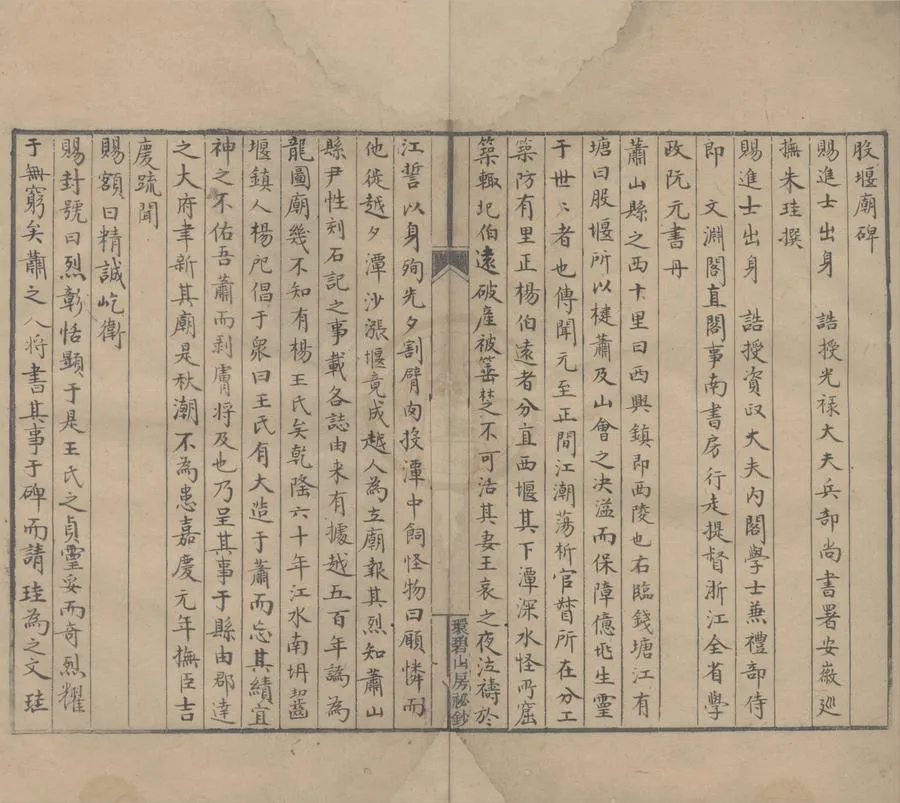 股堰廟碑
賜進士出身　誥授光祿大夫兵部尚書署安徽巡
撫朱珪撰
賜進士出身　誥授資政大夫內閣學士兼禮部侍
郎　文淵閣直閣事南書房行走提督浙江全省學
政阮元書丹
蕭山縣之西十里曰西興鎮即西陵也右臨錢塘江有
塘曰股堰所以楗蕭及山會之決溢而保障億兆生靈
于世〻者也傳聞元至正間江潮蕩析官督所在分工
築防有里正楊伯遠者分直西堰其下潭深水怪所窟
築輒圮伯遠破產被箠楚不可活其妻王哀之夜泣禱於
江誓以身殉先夕割臂肉投潭中飼怪物曰願憐而
他徙越夕潭沙漲堰竟成越人為立廟報其烈知蕭山
縣尹性刻石記之事載各誌由来有據越五百年譌為
龍圖廟幾不知有楊王氏矣乾隆六十年江水南坍齧
堰鎮人楊倡于眾曰王氏有大造于蕭而忘其績宜
神之不佑吾蕭而剥膚將及也乃呈其事于縣由郡達
之大府聿新其廟是秋潮不為患嘉慶元年撫臣吉
慶疏聞
賜額曰精誠屹衛
賜封號曰烈彰恬顯于是王氏之貞靈妥而奇烈耀
于無窮矣蕭之人將書其事于碑而請珪為之文珪
環碧山房祕鈔